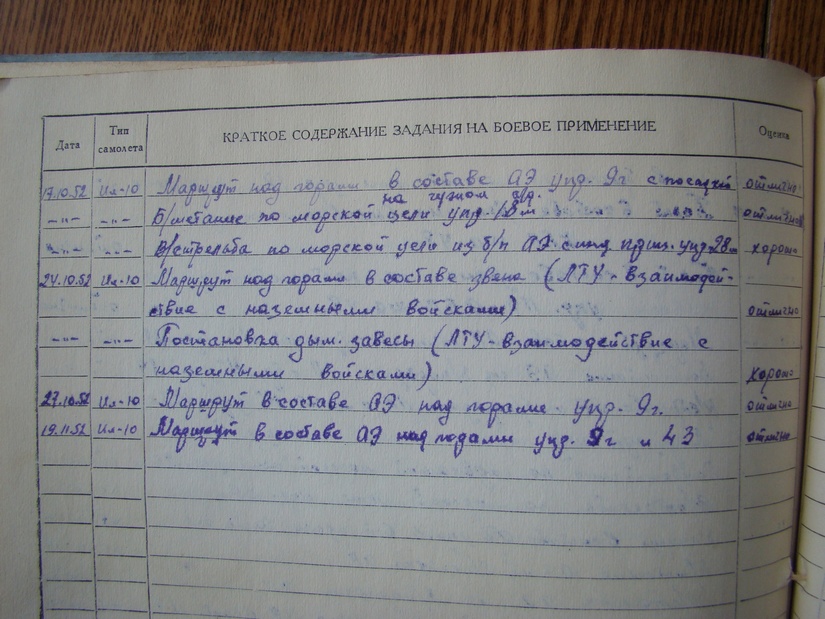 Дата Тип самолета КРАТКОЕ СОДЕРЖАНИЕ ЗАДАНИЯ НА БОЕВОЕ ПРИМЕНЕНИЕ Оценка
17.10.52 Ил-10 Маршрут над горами в составе АЭ упр. 9г с посадкой отлично
на чужом а/д.
-"- -"- Б/метание по морской цели упр. 18м отлично
-"- -"- В/стрельба по морской цели из б/п АЭ с упр 28м хорошо
24.10.52 Ил-10 Маршрут над горами в составе звена (ЛТУ-взаимодей-
ствие с наземными войсками) отлично
-"- -"- Постановка дым. завесы (ЛТУ-взаимодействие с
наземными войсками) хорошо
27.10.52 Ил-10 Маршрут в составе АЭ над горами упр. 9г. отлично
19.11.52 Ил-10 Маршрут в составе АЭ над горами упр. 9г и 43 отлично